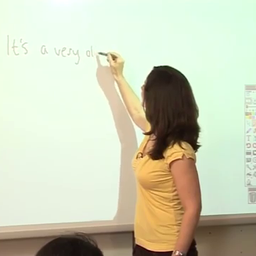 It's a very ol